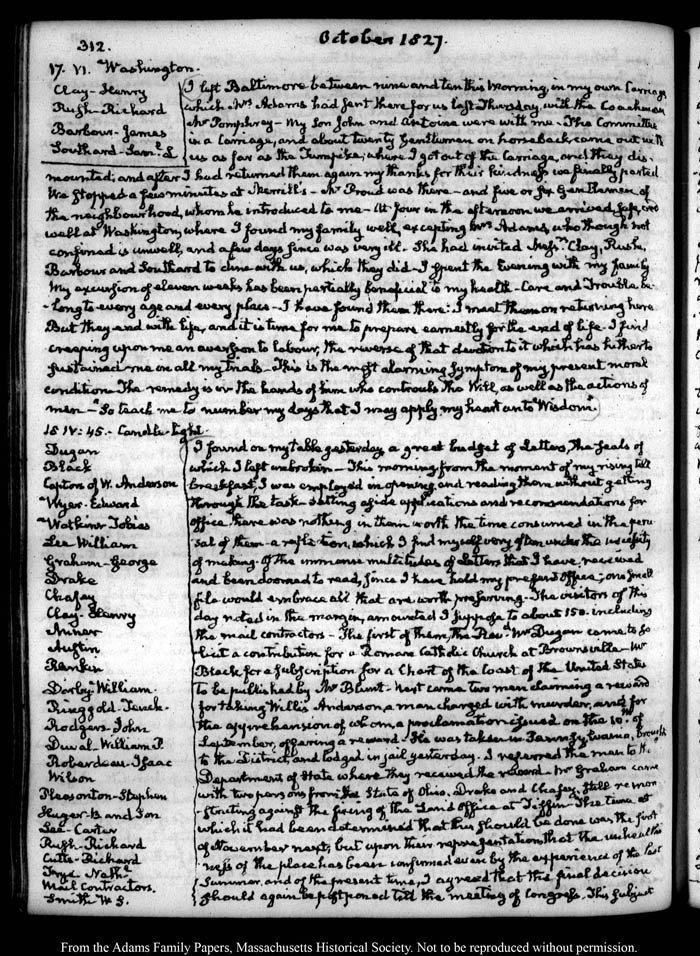 312.
October 1827.
17. VI. Washington.
Clay-Henry
Rush-Richard
Barbour-James
Southard-Sam.l L
I left Baltimore between nine and ten this Morning, in my own Carriage
which Mrs Adams had sent there for us last Thursday, with the Coachman
Mr Pomphrey - My Son John and Antoine were with me - The Committee
in a Carriage, and about twenty Gentlemen on horseback came out with
us as far as the Turnpike, where I got out of the Carriage, and they dis-
mounted; and after I had returned them again my thanks for their kindness we finally parted
We stopped a few minutes at Merrill's - Mr Proud was there - and five or six Gentlemen of
the neighbourhood, whom he introduced to me - At four in the afternoon we arrived safe and
well at Washington, where I found my family well, excepting Mrs Adams, who though not
confined is unwell, and a few days since was very ill. She had invited Mess.rs Clay, Rush,
Barbour and Southard to dine with us, which they did - I spent the Evening with my family
My excursion of eleven weeks has been partially beneficial to my health - Care and Trouble be-
long to every age and every place - I have found them there: I meet them on returning here
But they end with life, and it is time for me to prepare earnestly for the end of life - I find
creeping upon me an aversion to labour, the reverse of that devotion to it which has hitherto
sustained me in all my trials - This is the most alarming symptom of my present moral
condition - The remedy is in the hands of him who controuls the Will, as well as the actions of
men - "So teach me to number my days that I may apply my heart unto Wisdom".
18. IV: 45. - Candle-light.
Dugan
Black
Captors of W. Anderson
Wyer-Edward
Watkins Tobias
Lee William
Graham-George
Drake
Chafey
Clay-Henry
Miner
Austin
Rankin
Darby William.
Ringgold-Tench.
Rodgers-John
Duval-William P.
Roberdeau-Isaac
Wilson
Pleasonton-Stephen
Huger-B and Son
Lee-Carter
Rush-Richard
Cutts-Richard
Frye Nath.l
Mail Contractors.
Smith W S.
I found on my table yesterday a great budget of Letters, the seals of
which I left unbroken - This morning from the moment of my rising till
breakfast, I was employed in opening and reading them without getting
through the task - setting aside applications and recommendations for
office there was nothing in them worth the time consumed in the peru-
sal of them - a reflection, which I find myself very often under the necessity
of making - Of the immense multitudes of Letters that I have received
and been doomed to read, since I have held my present Office, one small
file would embrace all that are worth preserving - The visitors of this
day noted in the margin, amounted I suppose to about 150. including
the mail contractors - The first of them, the Rev.d Mr Dugan came to so-
licit a contribution for a Roman Catholic Church at Brownsville - Mr
Black for a subscription for a Chart of the Coast of the United States
to be published by Mr Blunt - Next came two men claiming a reward
for taking Willis Anderson, a man charged with murder, and for
the apprehension of whom, a proclamation issued on the 10.th of
September, offering a reward - He was taken in Pennsylvania, brought
to the District, and lodged in jail yesterday - I referred the men to the
Department of State where they received the reward - Mr Graham came
with two persons from the State of Ohio, Drake and Chafey, still remon-
strating against the fixing of the Land Office at Tiffin - The time at
which it had been determined that this should be done was the first
of November next; but upon their representation that the unhealthi-
ness of the place has been confirmed even by the experience of the last
Summer, and of the present time, I agreed that the final decision
should again be postponed till the meeting of Congress. This subject
From the Adams Family Papers, Massachusetts Historical Society. Not to be reproduced without permission.